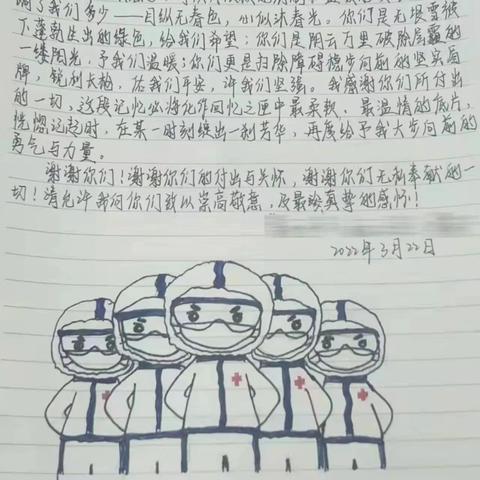 我们多少——目纵无春色，心似沐春光。你们是无垠雪被
下蓬勃生出的绿色，给我们希望；你们是阴云万里破除层霾的
一缕阳光，予我们温暖；你们更是扫除障碍稳步向前的坚实盾
牌，锐利长枪，佑我们平安，许我们坚强。我感谢你们所付出
的一切，这段记忆必将化作回忆之匣中最柔软、最温情的底片，
恍惚记起时，在某一时刻绽出一刹芳华，再度给予我大步向前的
勇气与力量。
谢谢你们！谢谢你们的付出与关怀，谢谢你们无私奉献的一
切！请允许我向你们致以崇高敬意，及最诚真挚的感怀！
2022年3月22日